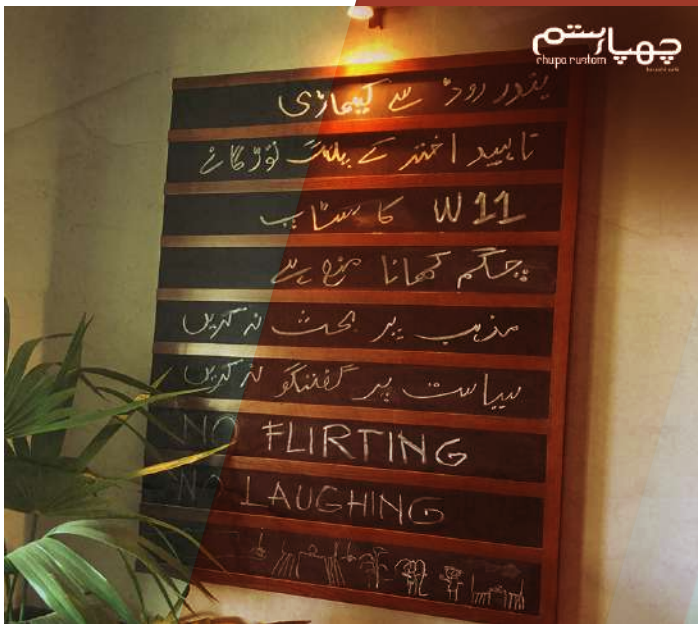 چھپا رستم
chupa rustom
بندر روڈ سے کیماڑی
ناہید اختر کے توڑ گانے
W11 کا سٹاپ
چنگم کھانا منع ہے
مذہب پر بحث نہ کریں
سیاست پر گفتگو نہ کریں
NO FLIRTING
NO LAUGHING